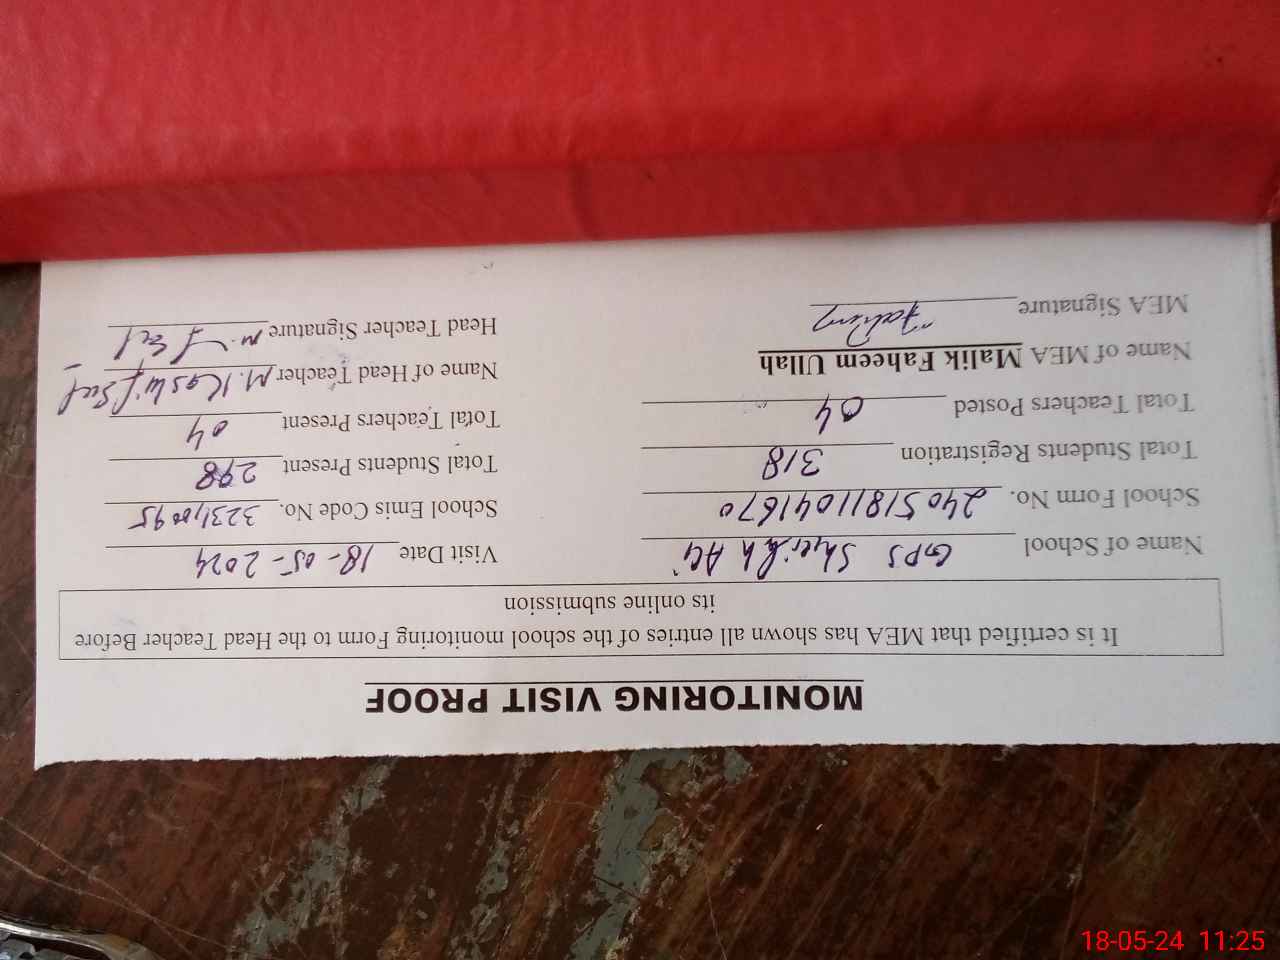 MONITORING VISIT PROOF
It is certified that MEA has shown all entries of the school monitoring Form to the Head Teacher Before
its online submission
Name of School GPS Sheikh Ali Visit Date 18-05-2024
School Form No. 24051811041670 School Emis Code No.
Total Students Registration 318 Total Students Present 298
Total Teachers Posted 04 Total Teachers Present 04
Name of MEA Malik Faheem Ullah Name of Head Teacher M. Kashif
MEA Signature Fahim Head Teacher Signature
18-05-24 11:25